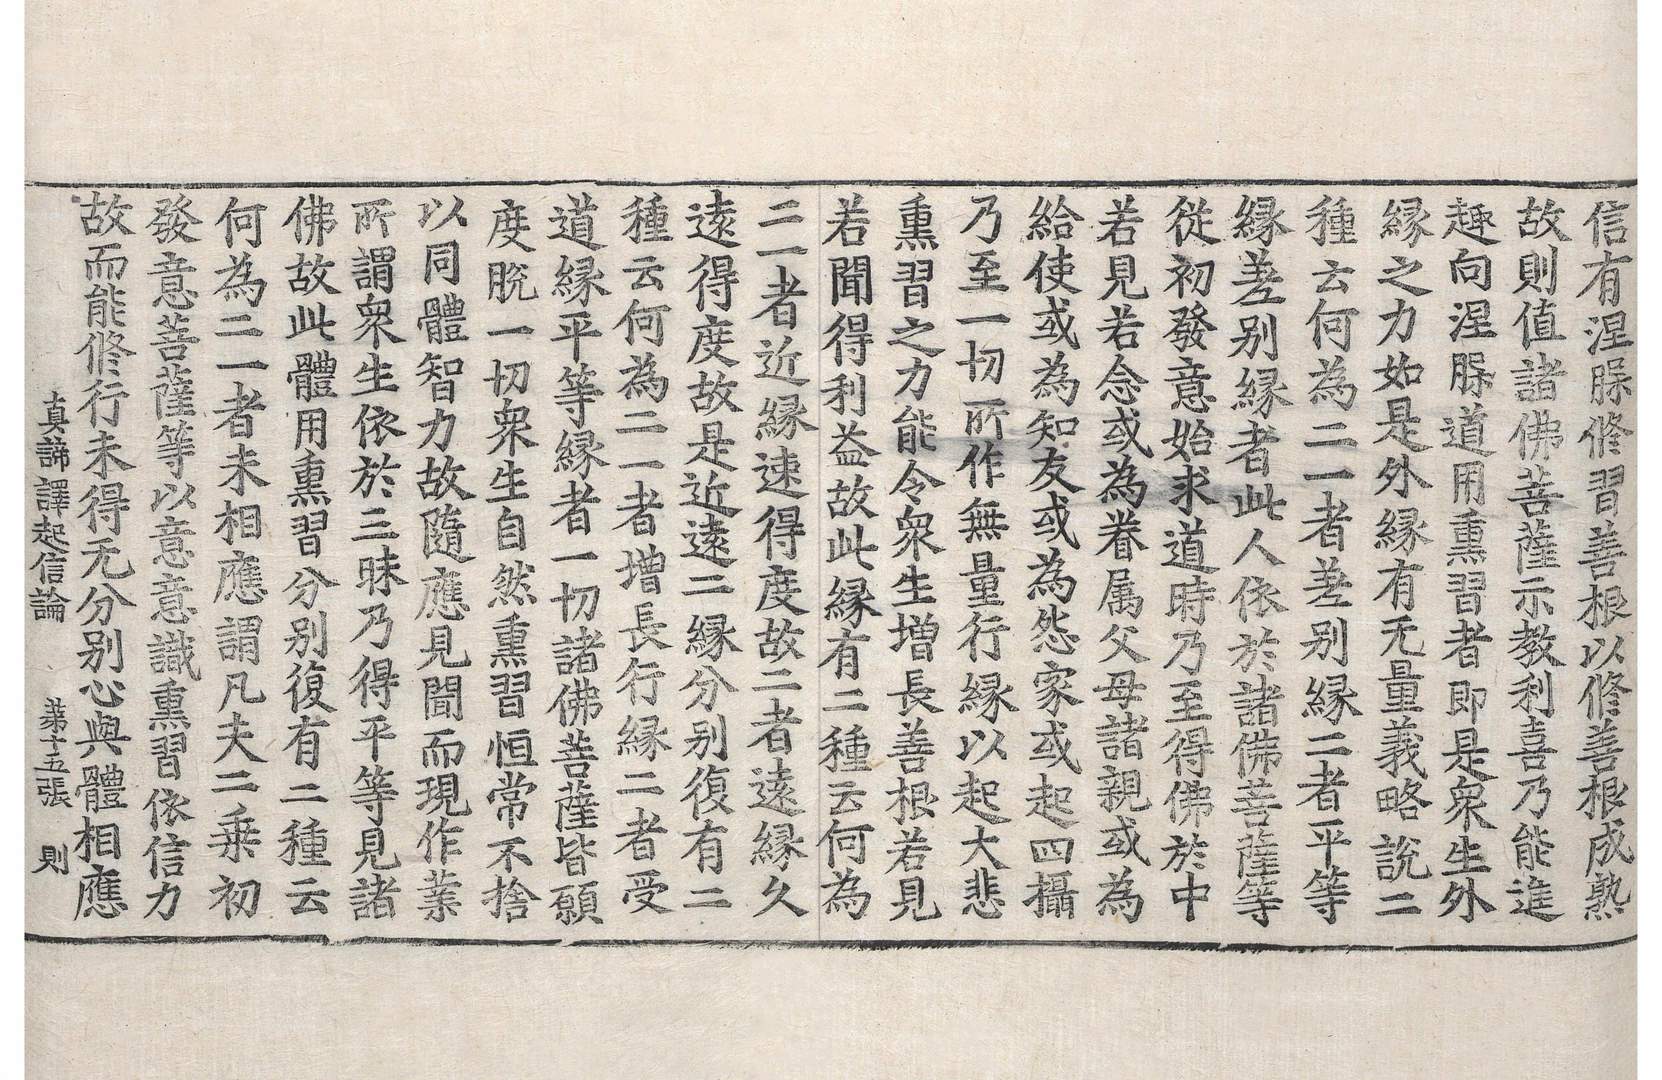 信有涅脲修習善根以修善根成熟
故則值諸佛菩薩示教利喜乃能進
趣向涅脲道用熏習者即是衆生外
緣之力如是外緣有无量義略說二
種云何為二一者差别緣二者平等
緣差别緣者此人依於諸佛菩薩等
從初發意始求道時乃至得佛於中
若見若念或為眷属父母諸親或為
給使或為知友或為怨家或起四攝
乃至一切所作無量行緣以起大悲
熏習之力能令衆生增長善根若見
若聞得利益故此緣有二種云何為
二一者近緣速得度故二者遠緣久
遠得度故是近遠二緣分别復有二
種云何為二一者增長行緣二者受
道緣平等緣者一切諸佛菩薩皆願
度脫一切衆生自然熏習恒常不捨
以同體智力故隨應見聞而現作業
所謂衆生依於三昧乃得平等見諸
佛故此體用熏習分别復有二種云
何為二一者未相應謂凡夫二乘初
發意菩薩等以意意識熏習依信力
故而能修行未得无分别心與體相應
真諦譯起信論 苐十五張 則